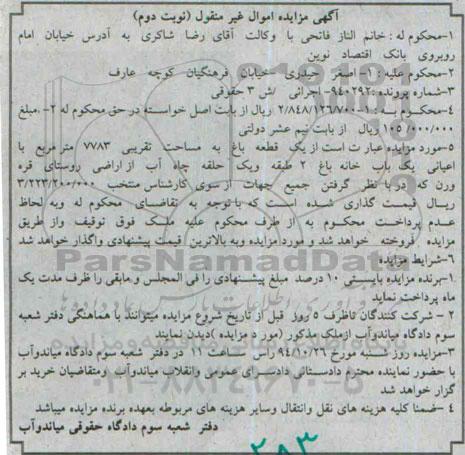 آگهی مزایده اموال غیر منقول (نوبت دوم)
۱-محکوم له : خانم الناز فاتحی با وکالت آقای رضا شاکری به آدرس خیابان امام
روبروی بانک اقتصاد نوین
۲-محکوم علیه : ۱- اصغر حیدری -خیابان فرهنگیان کوچه عارف
۳-شماره پرونده : ۹۴۰۲۹۲- اجرائی /ش ۳ حقوقی
۴-محکوم به : ۱-۲/۸۴۸/۱۲۶/۷۰۰ ریال از بابت اصل خواسته در حق محکوم له ۲-مبلغ
۱۰۵/۰۰۰/۰۰۰ ریال از بابت نیم عشر دولتی
۵-مورد مزایده عبارت است از یک قطعه باغ به مساحت تقریبی ۷۷۸۳ متر مربع با
اعیانی یک باب خانه باغ ۲ طبقه ویک حلقه چاه آب از اراضی روستای قره
ورن که در با نظر گرفتن جمیع جهات از سوی کارشناس منتخب ۳/۲۲۳/۲۰۰/۰۰۰
ریال قیمت گذاری شده است که با توجه به تقاضای محکوم له وبه لحاظ
عدم پرداخت محکوم به از طرف محکوم علیه ملک فوق توقیف واز طریق
مزایده فروخته خواهد شد و مورد مزایده وبه بالاترین قیمت پیشنهادی واگذار خواهد شد
۶-شرایط مزایده
۱-برنده مزایده بایستی ۱۰ درصد مبلغ پیشنهادی را فی المجلس و مابقی را ظرف مدت یک
ماه پرداخت نماید
۲ - شرکت کنندگان تاظرف ۵ روز قبل از تاریخ شروع مزایده میتوانند با هماهنگی دفتر شعبه
سوم دادگاه میاندوآب ازملک مذکور (مورد مزایده )دیدن نمایند
۳-مزایده روز شنبه مورخ ۹۴/۱۰/۲۶ راس ساعت ۱۱ در دفتر شعبه سوم دادگاه میاندوآب
با حضور نماینده محترم دادستانی دادسرای عمومی وانقلاب میاندوآب ومتقاضیان خرید بر
گزار خواهد شد
۴ -ضمنا کلیه هزینه های نقل وانتقال وسایر هزینه های مربوطه بعهده برنده مزایده میباشد
دفتر شعبه سوم دادگاه حقوقی میاندوآب
ParsNamadData
۰۲۱-۸۸۳۴۹۶۷۰-۵
۲۸۳